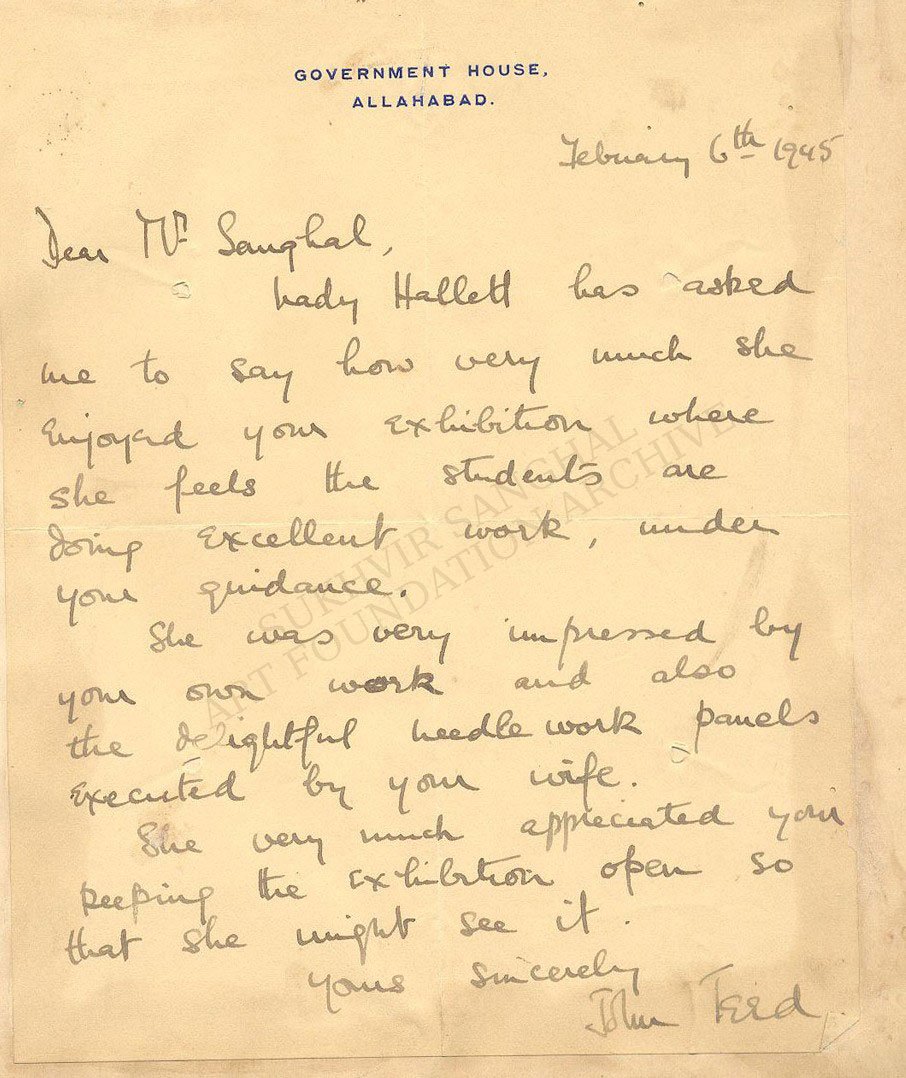 GOVERNMENT HOUSE,
ALLAHABAD.
February 6th 1945
Dear Mr Sanghal,
Lady Hallett has asked
me to say how very much she
enjoyed your exhibition where
she feels the students are
doing excellent work, under
your guidance.
She was very impressed by
your own work and also
the delightful needlework panels
executed by your wife.
She very much appreciated your
keeping the exhibition open so
that she might see it.
yours sincerely
John
SUKHVIR SANGHAL
ART FOUNDATION ARCHIVE